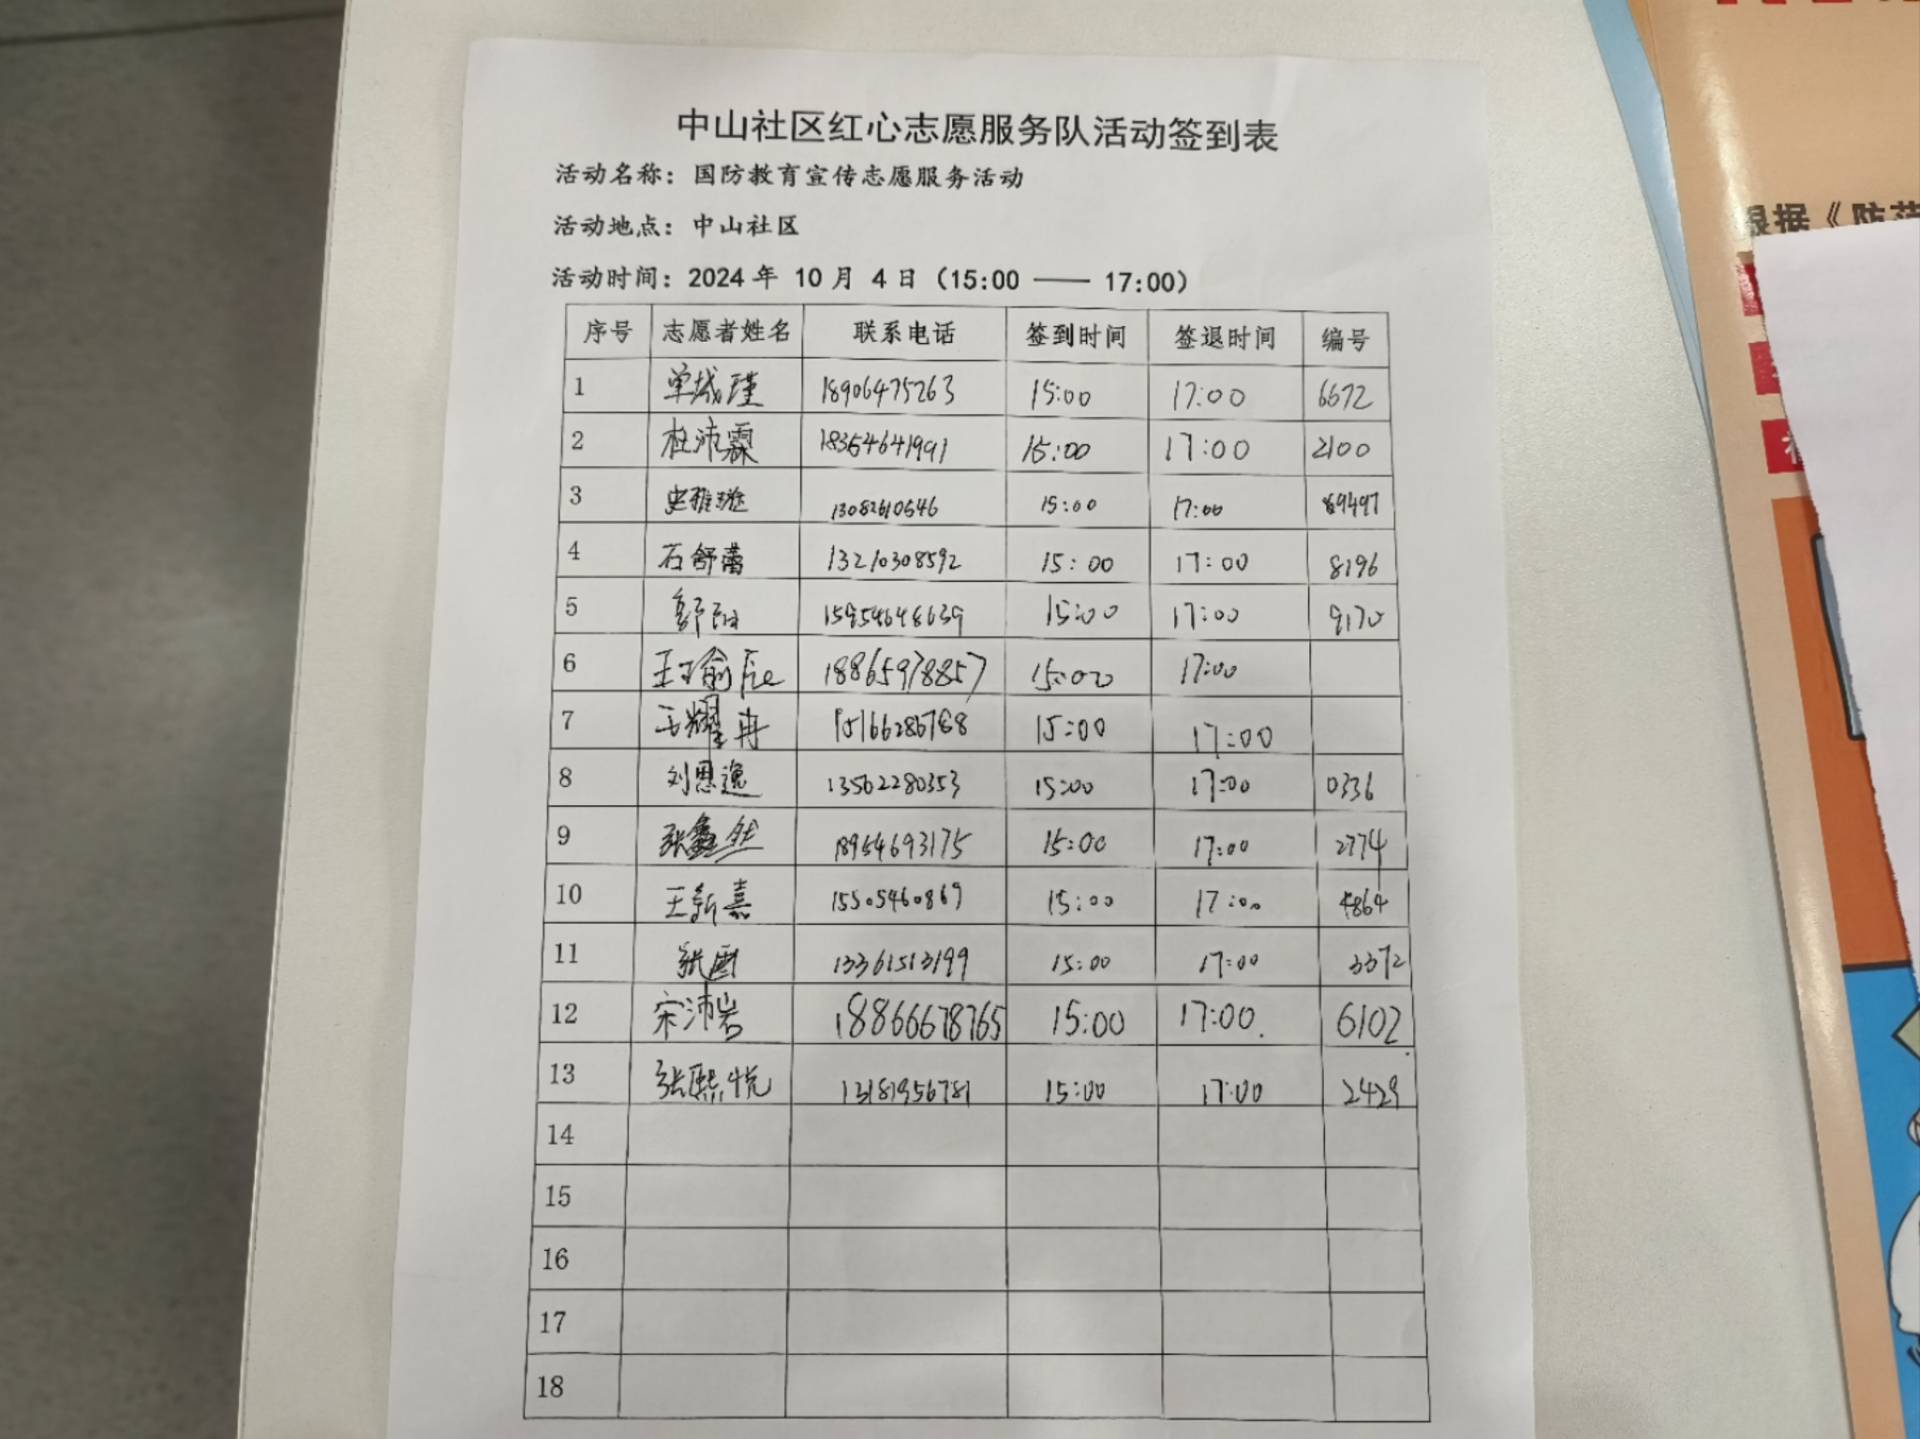 中山社区红心志愿服务队活动签到表
活动名称：国防教育宣传志愿服务活动
活动地点：中山社区
活动时间：2024年 10月 4日（15:00 —— 17:00）
序号 志愿者姓名 联系电话 签到时间 签退时间 编号
1 单城瑾 18906475263 15:00 17:00 6672
2 杜沛霖 18354641991 15:00 17:00 2100
3 史雅璇 13082610546 15:00 17:00 69497
4 石舒蕾 13210308592 15:00 17:00 8196
5 15954648639 15:00 17:00 9170
6 18865978857 15:00 17:00
7 王耀冉 15166286788 15:00 17:00
8 刘思逸 13562280353 15:00 17:00 0336
9 张鑫然 18954693175 15:00 17:00 2774
10 王新嘉 15505460867 15:00 17:00 4864
11 张画 13361513199 15:00 17:00 3372
12 宋沛岩 18866678765 15:00 17:00. 6102
13 张熙悦 13181956781 15:00 17:00 2429
14
15
16
17
18
根据《防范